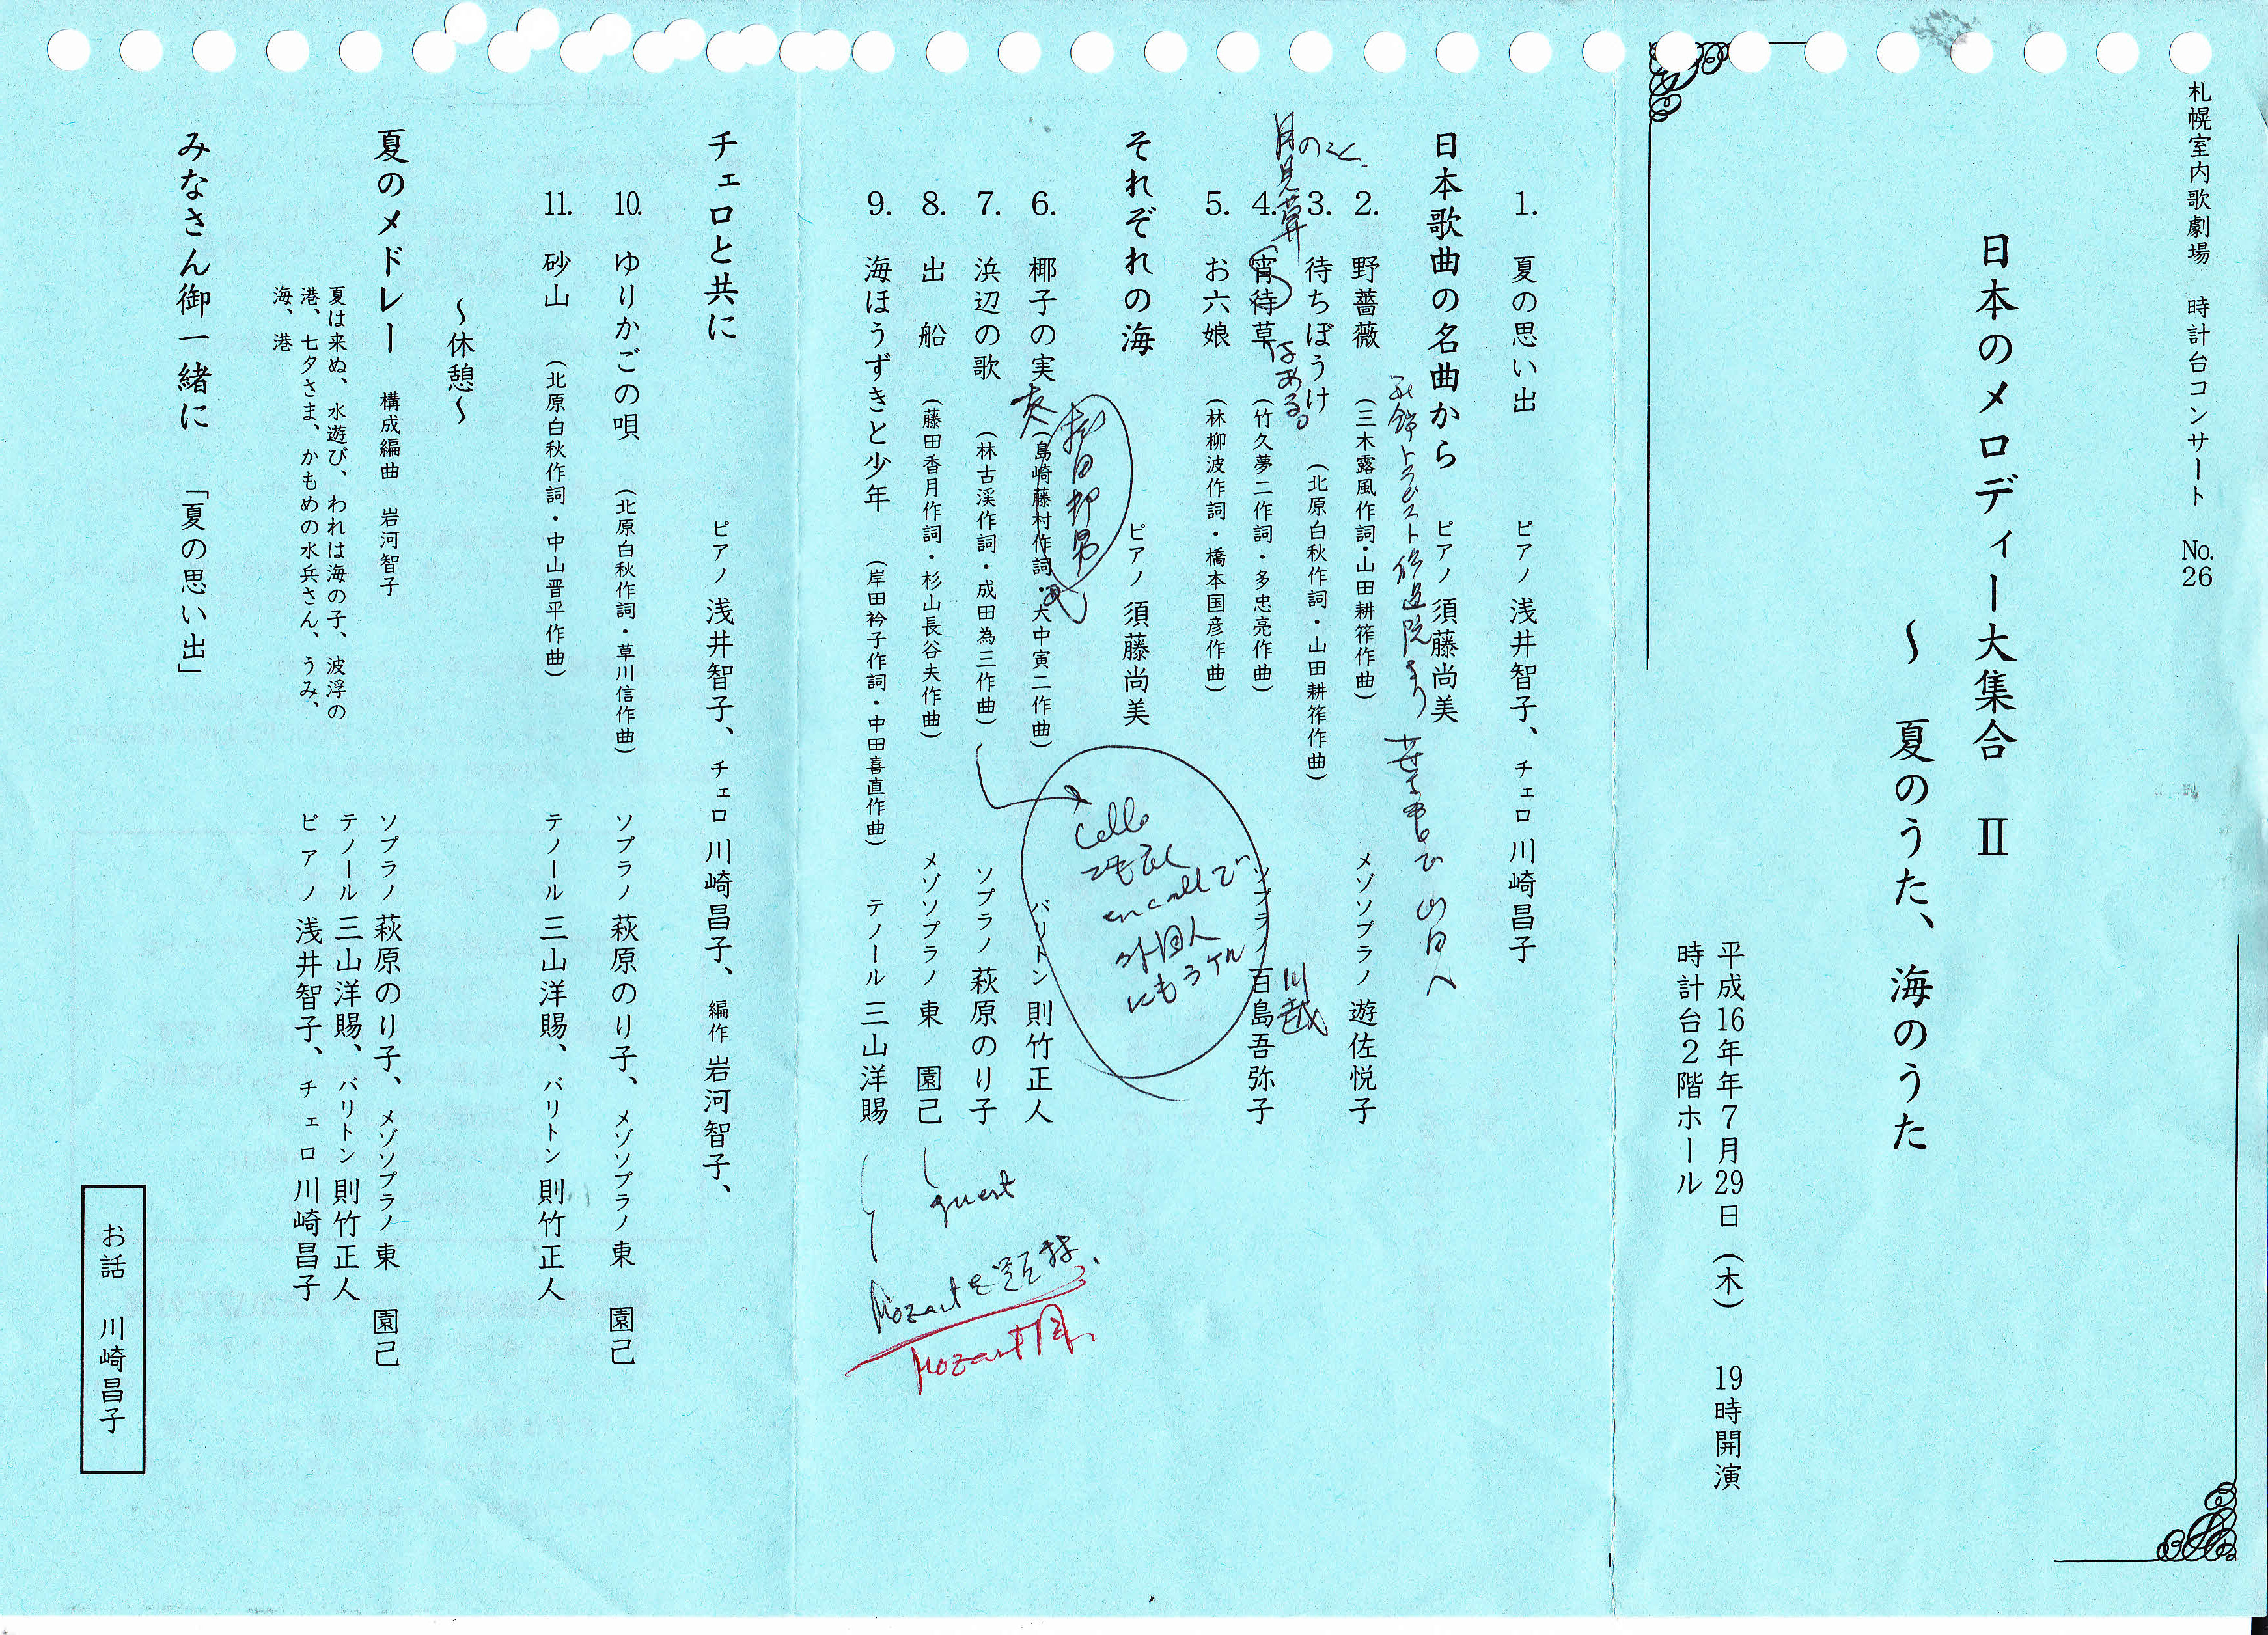 札幌室内歌劇場　時計台コンサート　No.26
日本のメロディー大集合　Ⅱ
～　夏のうた、海のうた
平成16年年7月29日（木）　19時開演
時計台2階ホール
1.　夏の思い出　ピアノ 浅井智子、チェロ 川崎昌子
日本歌曲の名曲から　ピアノ 須藤尚美
トラピスト修道院より
2.　野薔薇　（三木露風作詞・山田耕筰作曲）　メゾソプラノ 遊佐悦子
3.　待ちぼうけ　（北原白秋作詞・山田耕筰作曲）
月のこと、
月見草
はある。
川越
4.　宵待草　（竹久夢二作詞・多忠亮作曲）　ソプラノ 百島吾弥子
5.　お六娘　（林柳波作詞・橋本国彦作曲）
それぞれの海　ピアノ 須藤尚美
6.　椰子の実　（島崎藤村作詞・大中寅二作曲）　バリトン 則竹正人
7.　浜辺の歌　（林古渓作詞・成田為三作曲）　ソプラノ 萩原のり子
Cello
でも
外国人
にもうケル
8.　出　船　（藤田香月作詞・杉山長谷夫作曲）　メゾソプラノ 東　園己
guest
9.　海ほうずきと少年　（岸田衿子作詞・中田喜直作曲）　テノール 三山洋賜
Mozartを
Mozart
チェロと共に　ピアノ 浅井智子、チェロ 川崎昌子、編作 岩河智子、
10.　ゆりかごの唄　（北原白秋作詞・草川信作曲）　ソプラノ 萩原のり子、メゾソプラノ 東　園己
11.　砂山　（北原白秋作詞・中山晋平作曲）　テノール 三山洋賜、バリトン 則竹正人
～休憩～
夏のメドレー　構成編曲　岩河智子　ソプラノ 萩原のり子、メゾソプラノ 東　園己
テノール 三山洋賜、バリトン 則竹正人
ピアノ 浅井智子、チェロ 川崎昌子
夏は来ぬ、水遊び、われは海の子、波浮の
港、七夕さま、かもめの水兵さん、うみ、
海、港
みなさん御一緒に　「夏の思い出」
お話　川崎昌子